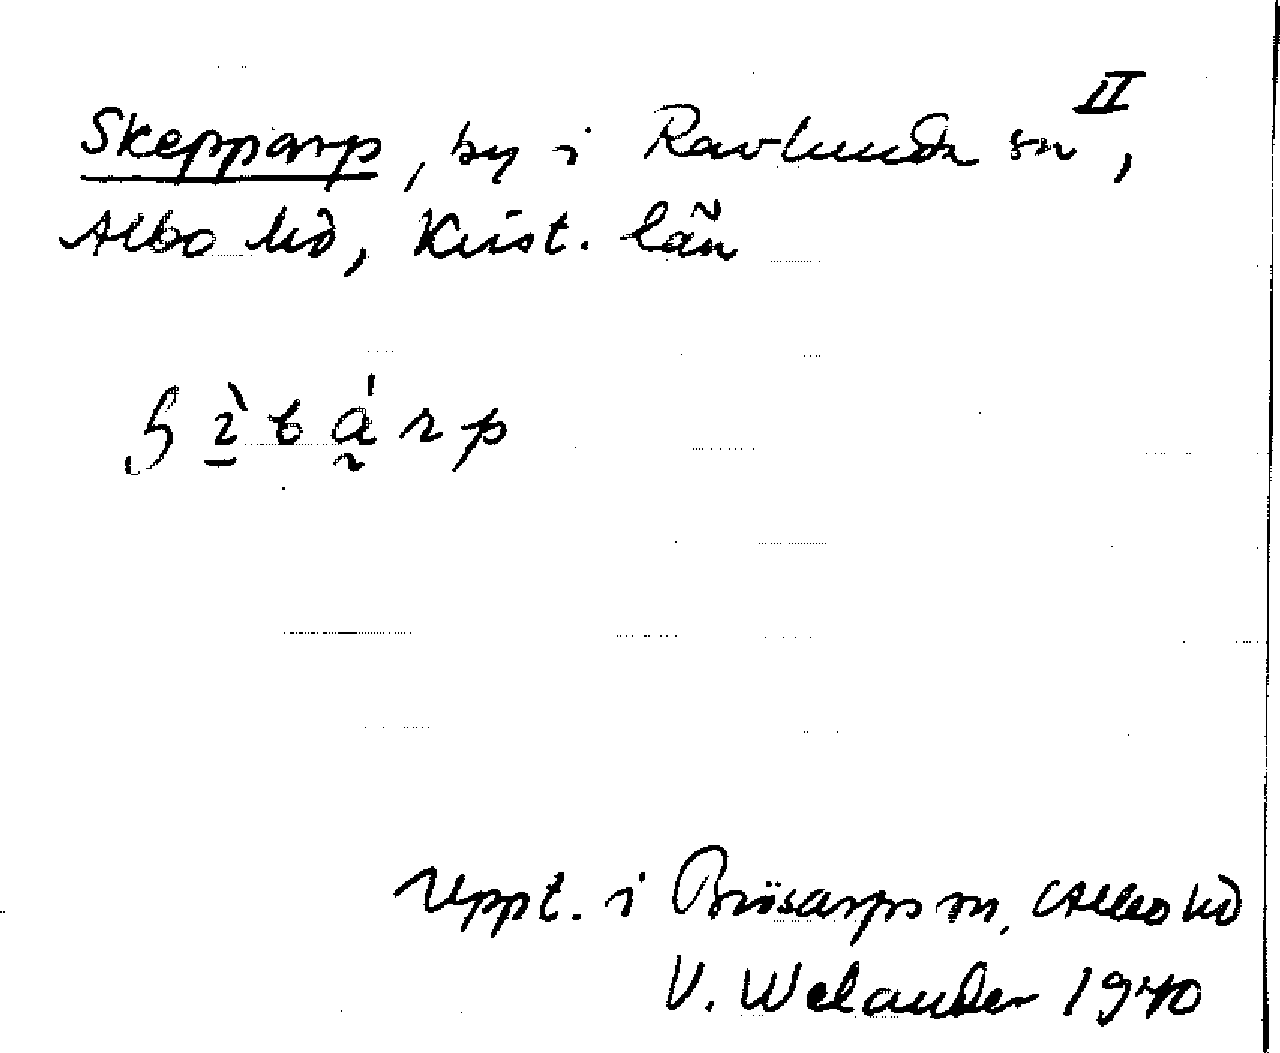 Skepparp, by i Ravlunda sn II,
Albo hd, Krist. län
Uppt. i Brösarps sn, Albo hd
V. Welander 1970